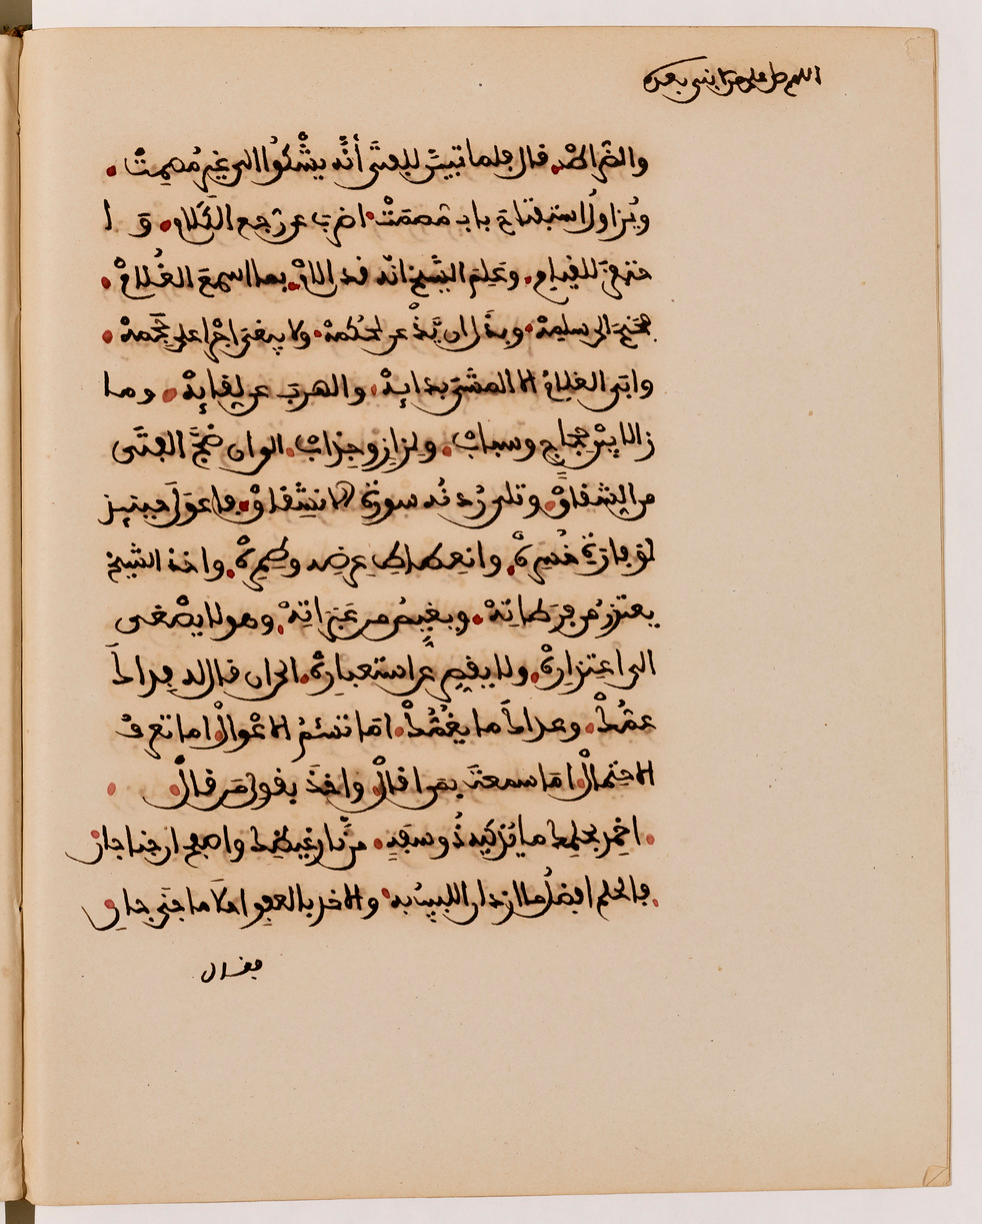 اللهم صل على من لا نبي بعده
والضراط. قال فلما تبين للفتى أنه يشكوا الى غير مصمت.
ويزاول استفتاح باب مصمت. اضرب عن رجع الكلام. و ا
حتفز للقيام. وعلم الشيخ انه قد الام. بما اسمع الغلام.
فجنح الى سلمه. وبذل ان يذعن لحكمه. ولا يبغى اجرا على حجمه.
وابى الغلام الا المشى بدايه. والهرب من لقايه. وما
زالا في حجاج وسباب. ولزاز وجذاب. الى ان ضج الفتى
من الشقاق. وتلى ردنه سورة الانشقاق. فاعول حينيذ
لوفارة خسره. وانعطاط عرضه وطمره. واخذ الشيخ
يعتذر من فرطاته. ويغيض من عبراته. وهو لا يصغى
الى اعتذاره. ولا يقصر عن استعباره. الى ان قال له فداك
عمك. وعداك ما يغمك. اما تسئم الاعوال. اما تعرف
الاحتمال. اما سمعت بمن اقال. واخذ بقول من قال.
اخمد بحلمك ما يذكيه ذو سفه. من نار غيظك واصفح ان جنا جان
فالحلم افضل ما ازدان اللبيب به. والاخذ بالعفو احلا ما جنى جان
فقال